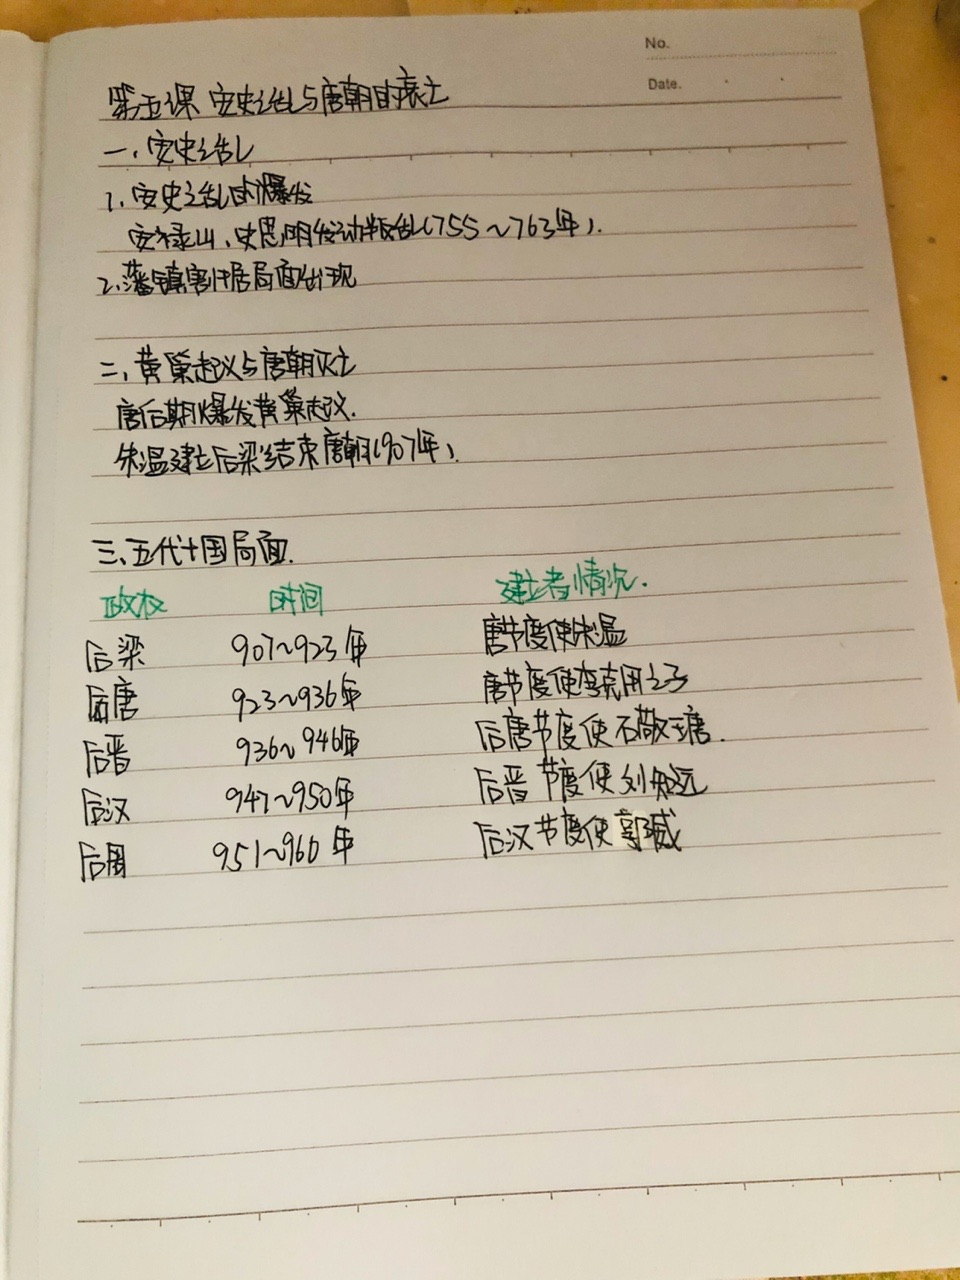 No.
Date.
第五课 安史之乱与唐朝的衰亡
一、安史之乱
1、安史之乱的爆发
安禄山、史思明发动叛乱(755~763年).
2、藩镇割据局面出现
二、黄巢起义与唐朝灭亡
唐后期爆发黄巢起义.
朱温建立后梁结束唐朝(907年).
三、五代十国局面.
政权 时间 建立者情况.
后梁 907~923年 唐节度使朱温
后唐 923~936年 唐节度使李克用之子
后晋 936~946年 后唐节度使石敬瑭.
后汉 947~950年 后晋节度使刘知远
后周 951~960年 后汉节度使郭威